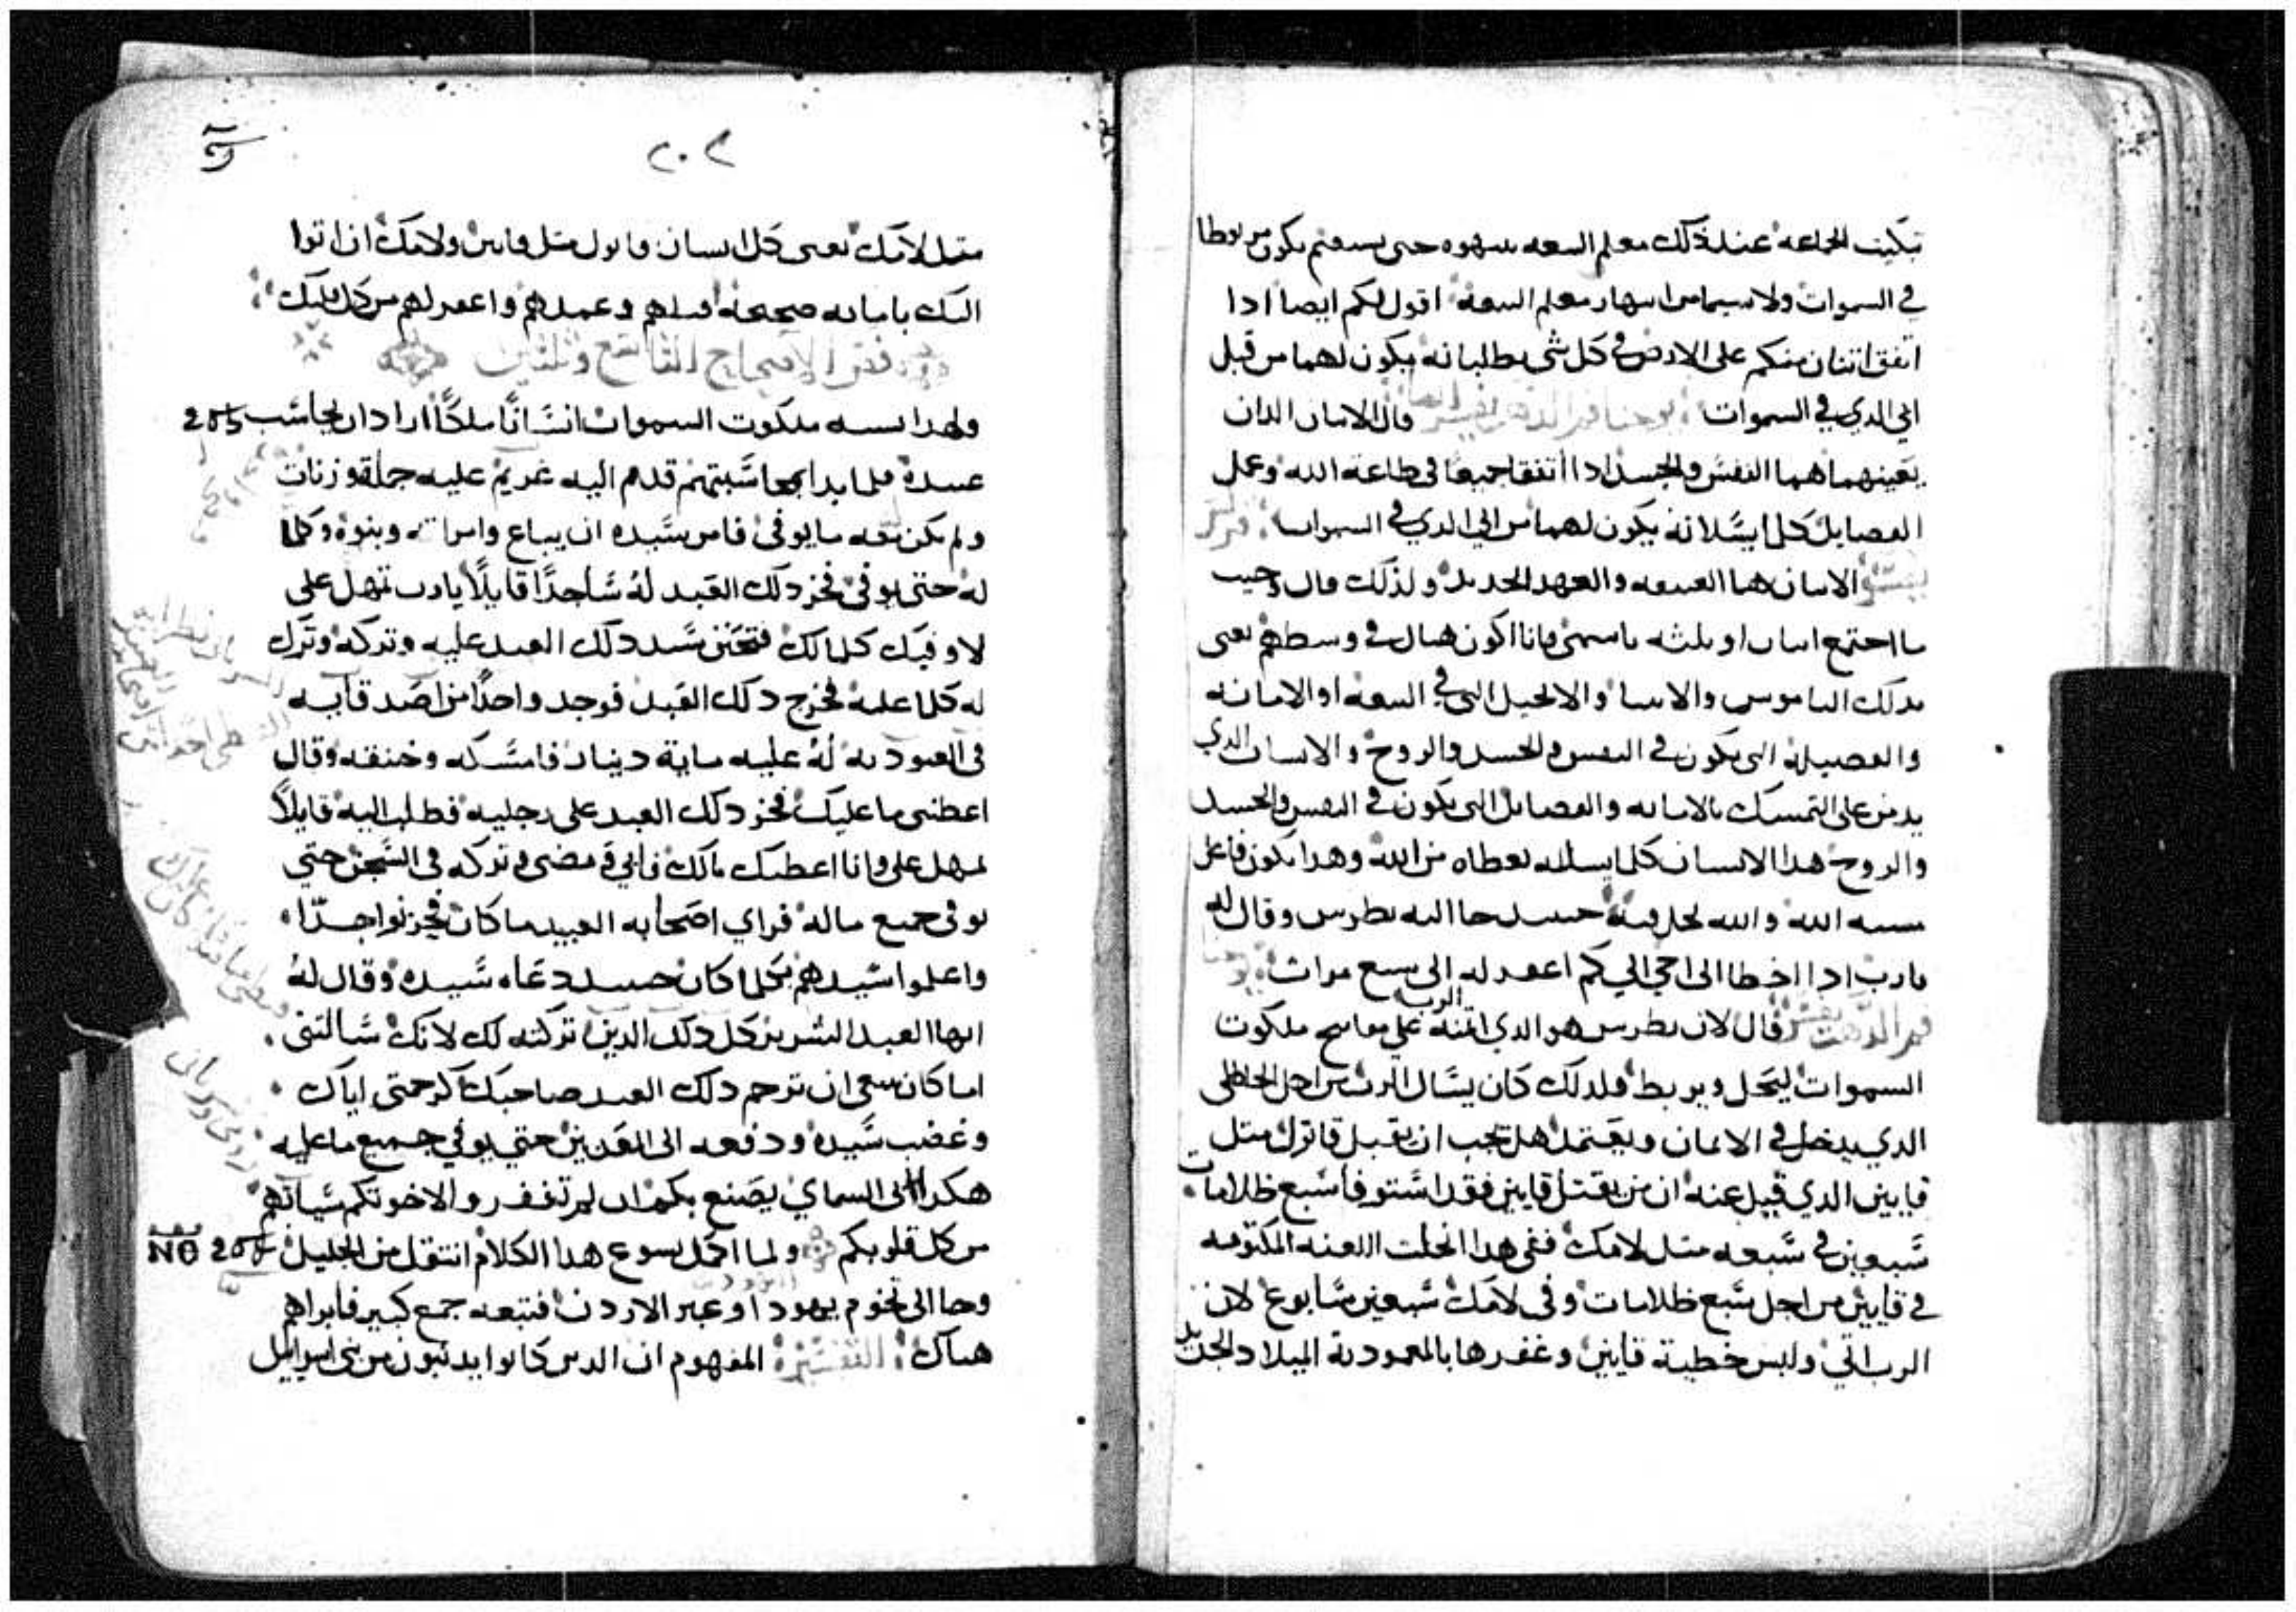 تبكيت الجماعة عند ذلك معلم البيعه يشهره حتى يستغنم يكون مربوطا
في السموات ولا سيما من اسهار معلم البيعه اقول لكم ايضا ادا
اتفق اتنان منكم على الارض في كل شى يطلبانه يكون لهما من قبل
ابي الدي في السموات يوحنا فم الذهب يفسر ايضا قال الاتنان اللدان
يعينهما هما النفس والجسد ادا اتفقا جميعا في طاعة الله وعمل
الفضايل كل ما يسلانه يكون لهما من ابي الدي في السموات
يفسر الاتنان هما العتيقه والعهد الجديد ولذلك قال حيت
ما اجتمع اتنان او تلثه باسمي فانا اكون هناك في وسطهم يعنى
بدلك الناموس والانبيا والانجيل التي في البيعه او الامانه
والفضيله التي تكون في النفس والجسد والروح والانسان الدي
يدمن على التمسك بالامانه والفضايل التي تكون في النفس والجسد
والروح هدا الانسان كلما يسله يعطاه من الله وهدا يكون فاعل
الله والله يحل فيه حينيد جا اليه بطرس وقال له
يارب ادا اخطا الى اخي الى كم اغفر له الى سبع مرات يوحنا
فم الدهب يفسر قال لان بطرس هو الدي اتمنه الرب على مفاتيح ملكوت
السموات ليحل ويربط فلدلك كان يسال الرب من اجل الخاطى
الدي يدخل في الايمان ويعتمد هل يجب ان يقبل قاتول متل
قايين الدي قيل عنه ان من يقتل قايين فقد استوفا سبع ظلامات
سبعين في سبعه متل لامك ففى هدا انحلت اللعنه المكتوبه
في قايين من اجل سبع ظلامات وفى لامك سبعين سابوع لان
الرب اتي ولبس خطية قايين وغفرها بالمعمودية الميلاد الجديد
٢٠٢
متل لامك يعنى كل انسان قاتول متل قايين ولامك ان اتوا
اليك بامانه صحيحه اقبلهم وعمدهم واغفر لهم من كل قلبك
فقر الاصحاح التاسع وتلتين
ولهدا يشبه ملكوت السموات انسانا ملكا اراد ان يحاسب
عبيده فلما بدا بمحاسبتهم قدم اليه غريم عليه جملة وزنات
ولم يكن معه ما يوفى فامر سيده ان يباع وامراته وبنوه وكلما
له حتى يوفى فخر دلك العبد له ساجدا قايلا يارب تمهل على
لاوفيك كلما لك فتحنن سيد دلك العبد عليه وتركه وترك
له كلما عليه فخرج دلك العبد فوجد واحدا من اصدقايه
في العبوديه له عليه ماية دينار فامسكه وخنقه وقال
اعطنى ما عليك فخر دلك العبد على رجليه فطلب اليه قايلا
تمهل على وانا اعطيك مالك فابي ومضى وتركه في السجن حتي
يوفى جميع ماله فراي اصحابه العبيد ما كان فحزنوا جدا
واعلموا سيدهم بكلما كان حينيد دعاه سيده وقال له
ايها العبد الشرير كل دلك الدين تركته لك لانك سالتنى
اما كان ينبغى ان ترحم دلك العبد صاحبك كرحمتى اياك
وغضب سيده ودفعه الى المعدبين حتي يوفي جميع ما عليه
هكدا ابي السماي يصنع بكم ان لم تغفروا لاخوتكم سياتهم
من كل قلوبكم ولما اكمل يسوع هدا الكلام انتقل من الجليل
وجا الى تخوم يهودا وعبر الاردن فتبعه جمع كبير فابراهم
هناك التفسير المفهوم ان الدين كانوا يدنبون من بنى اسراييل